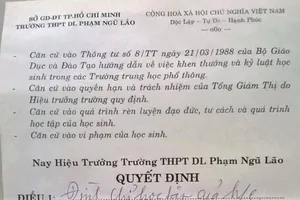 SỞ GD-ĐT TP.HỒ CHÍ MINH
TRƯỜNG THPT DL PHẠM NGŨ LÃO
CỘNG HOÀ XÃ HỘI CHỦ NGHĨA VIỆT NAM
Độc Lập - Tự Do - Hạnh Phúc
--- o0o ---
- Căn cứ vào Thông tư số 8/TT ngày 21/03/1988 của Bộ Giáo
Dục và Đào Tạo hướng dẫn về việc khen thưởng và kỷ luật học
sinh trong các Trường trung học phổ thông.
- Căn cứ vào quyền hạn và trách nhiệm của Tổng Giám Thị do
Hiệu trưởng trường quy định.
- Căn cứ vào quá trình rèn luyện đạo đức, tư cách và quá trình
học tập của học sinh.
- Căn cứ vào vi phạm của học sinh.
Nay Hiệu Trưởng Trường THPT DL Phạm Ngũ Lão
QUYẾT ĐỊNH
ĐIỀU 1: Đình chỉ học